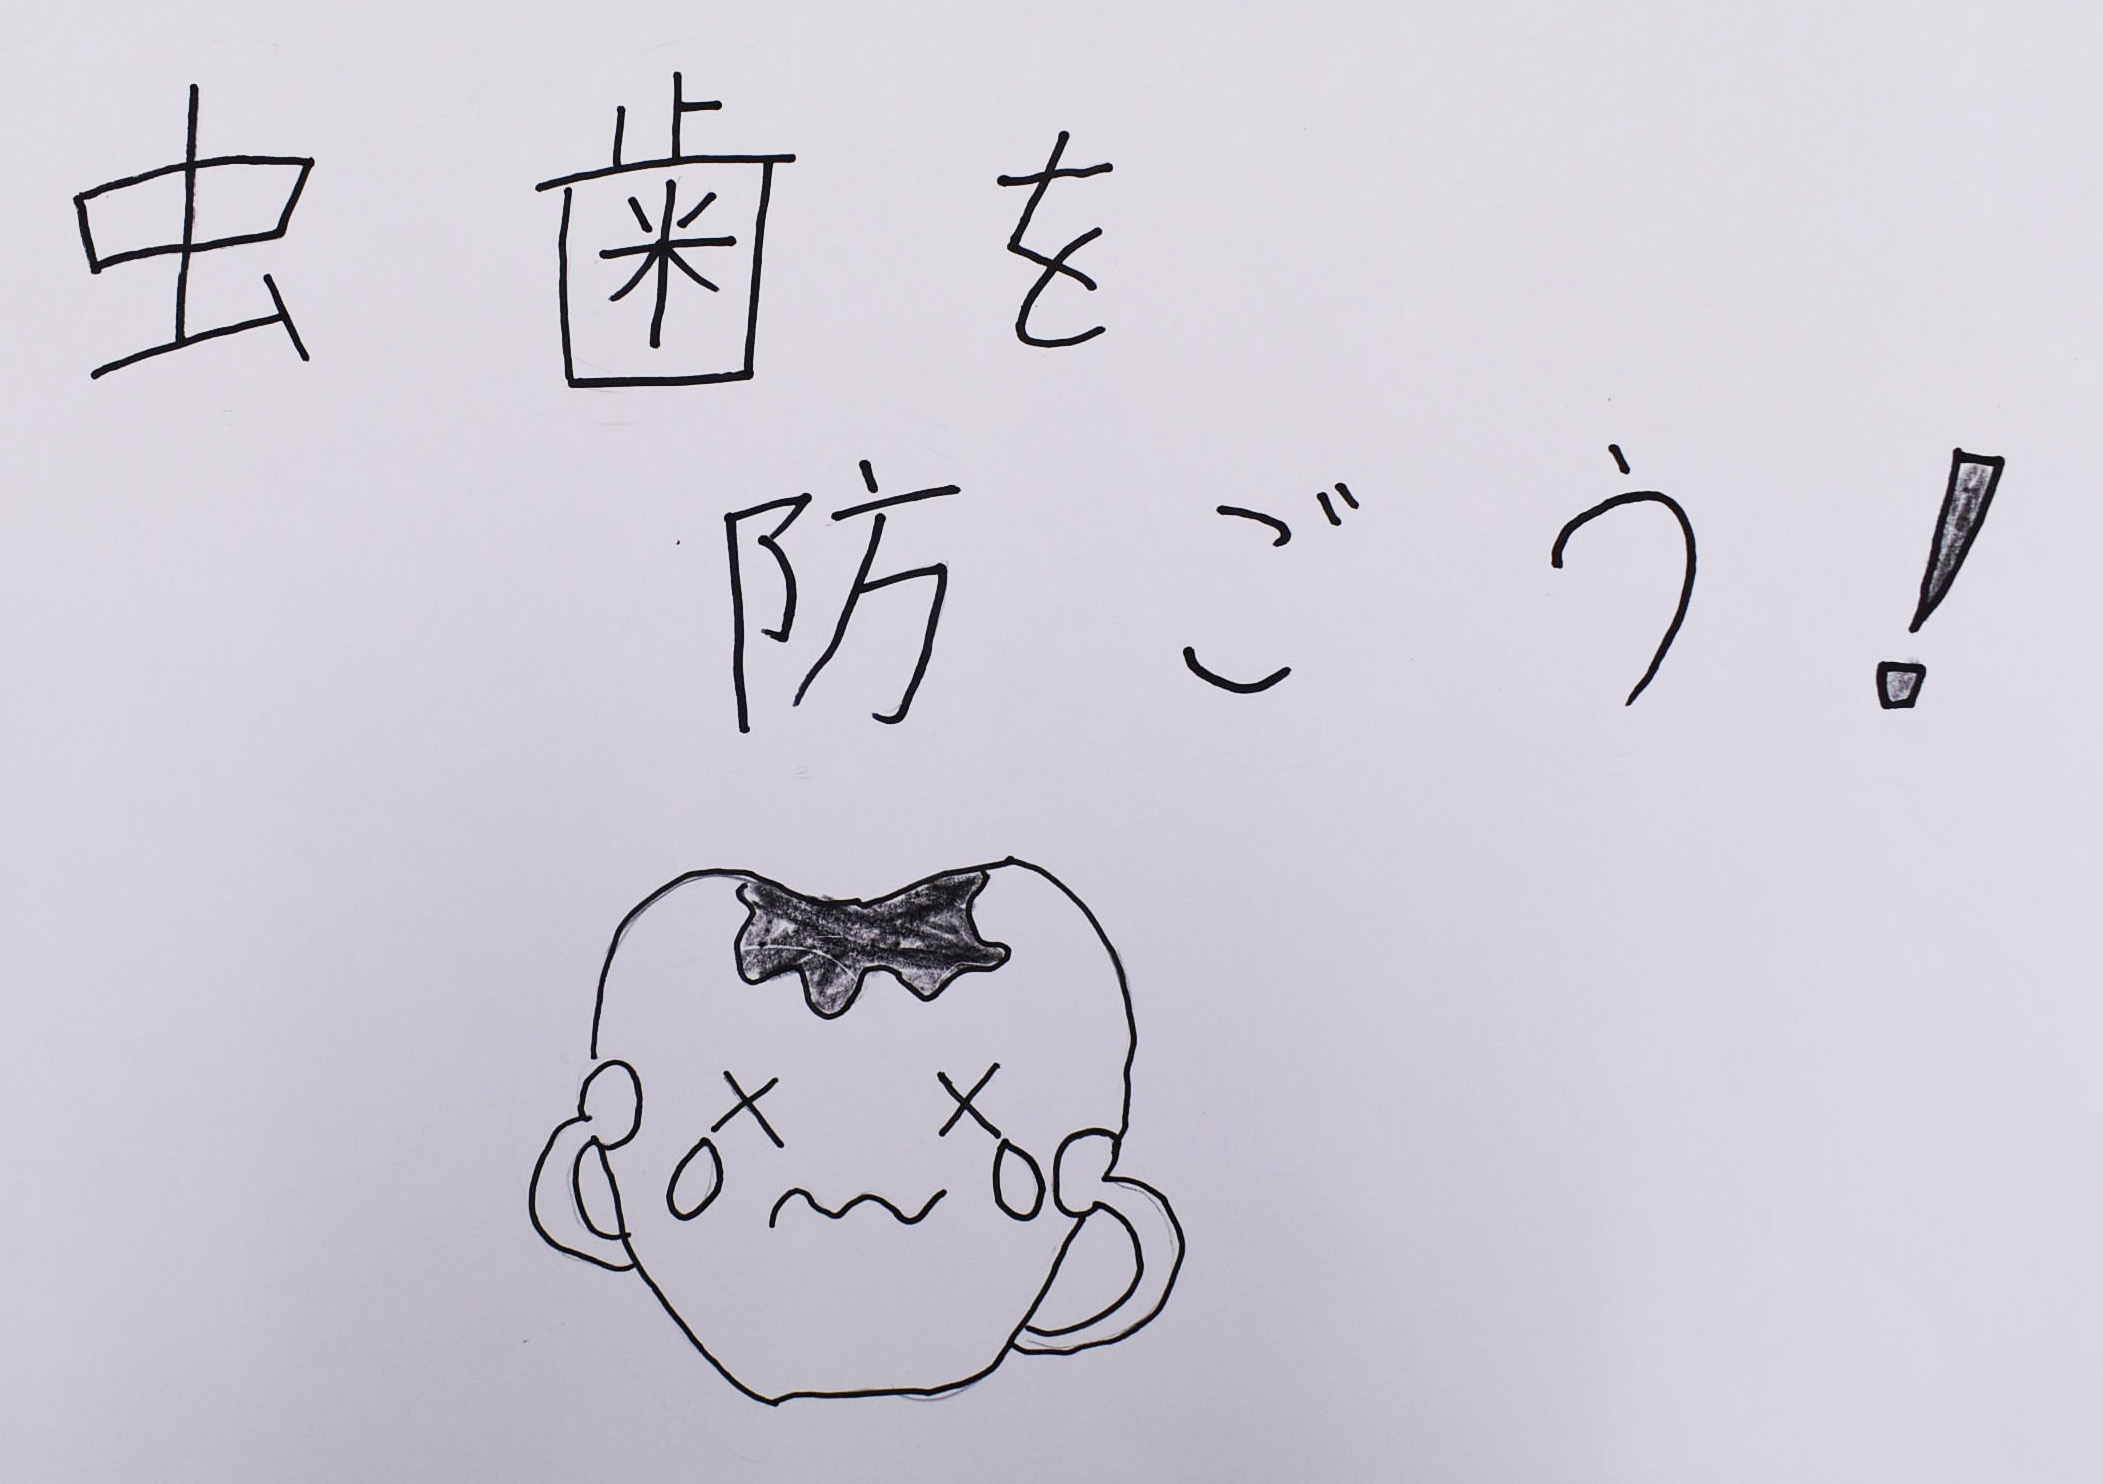 虫歯を
防ごう!